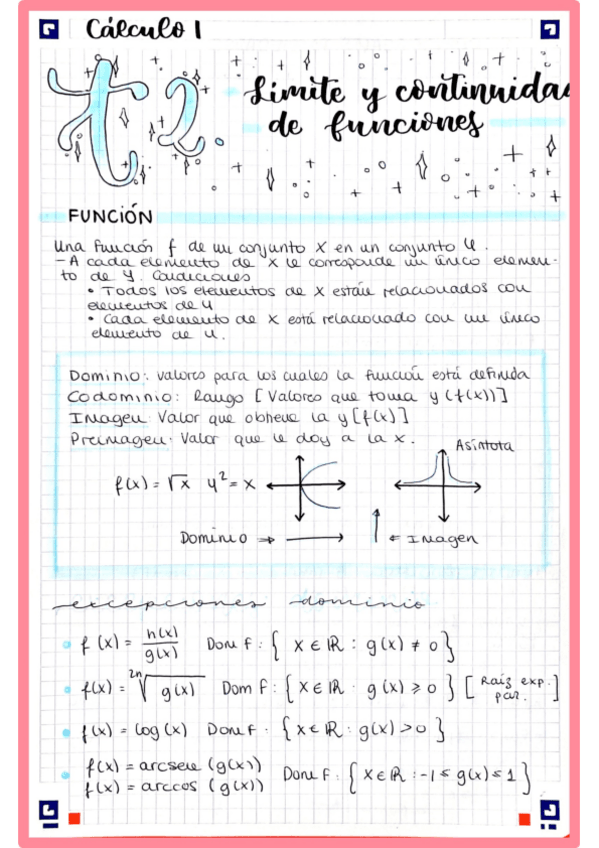 Cálculo 1
t2.
Límite y continuidad
de funciones
FUNCIÓN
Una función f de un conjunto X en un conjunto Y.
- A cada elemento de X le corresponde un único elemen-
to de Y. Condiciones
• Todos los elementos de X están relacionados con
elementos de Y
• Cada elemento de X está relacionado con un único
elemento de Y.
Dominio: valores para los cuales la función está definida
Codominio: Rango [Valores que toma y (f(x))]
Imagen: Valor que obtiene la y [f(x)]
Preimagen: Valor que le doy a la x.
Asíntota
f(x) = √x y² = x
Dominio → ← Imagen
excepciones dominio
• f(x) = h(x)/g(x) Dom f: { x ∈ ℝ : g(x) ≠ 0 }
• f(x) = ²ⁿ√g(x) Dom f: { x ∈ ℝ : g(x) ≥ 0 } [Raíz exp. par.]
• f(x) = log(x) Dom f: { x ∈ ℝ : g(x) > 0 }
• f(x) = arcsen (g(x))
f(x) = arccos (g(x)) Dom f: { x ∈ ℝ : -1 ≤ g(x) ≤ 1 }